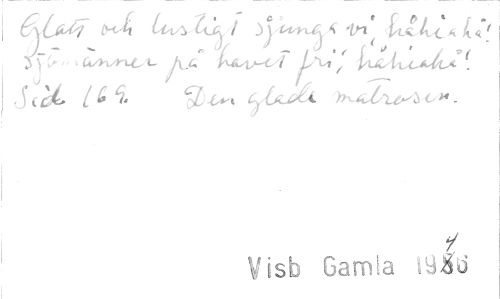 Glatt och lustigt sjunga vi, håhiahå!
Sjömänner på havet fri, håhiahå!
Sid. 169. Den glade matrosen.
Visb Gamla 1946